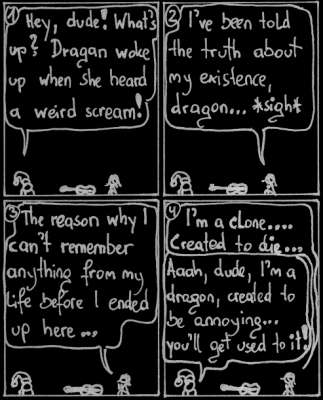 1 Hey, dude! What's
up? Dragan woke
up when she heard
a weird scream!
2 I've been told
the truth about
my existence,
dragon... *sigh*
3 The reason why I
can't remember
anything from my
life before I ended
up here...
4 I'm a clone....
Created to die...
Aaah, dude, I'm a
dragon, created to
be annoying...
you'll get used to it!